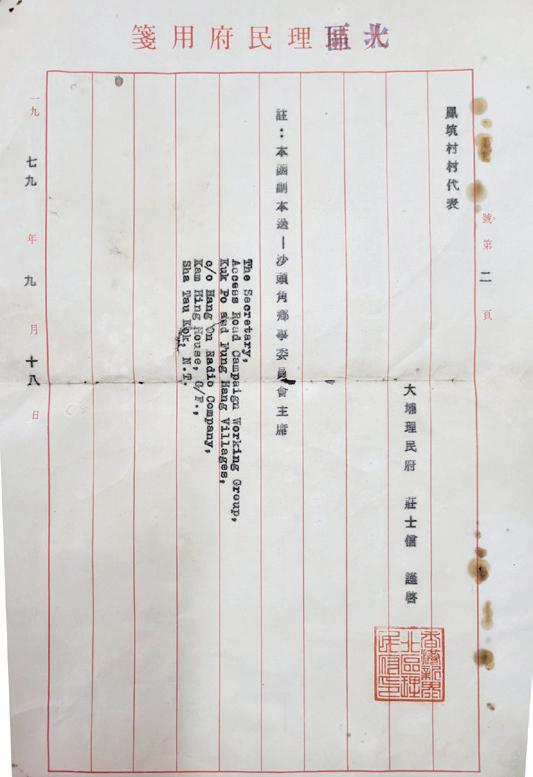 北區理民府用箋
號第二頁
鳳坑村村代表
大埔理民府 莊士信 謹啓
註：本函副本送—沙頭角鄉事委員會主席
The Secretary,
Access Road Campaign Working Group,
Kuk Po and Fung Hang Villages,
c/o Hang On Radio Company,
Kam Hing House, G/F.,
Sha Tau Kok, N.T.
一九七九年九月十八日
香港新界
北區理